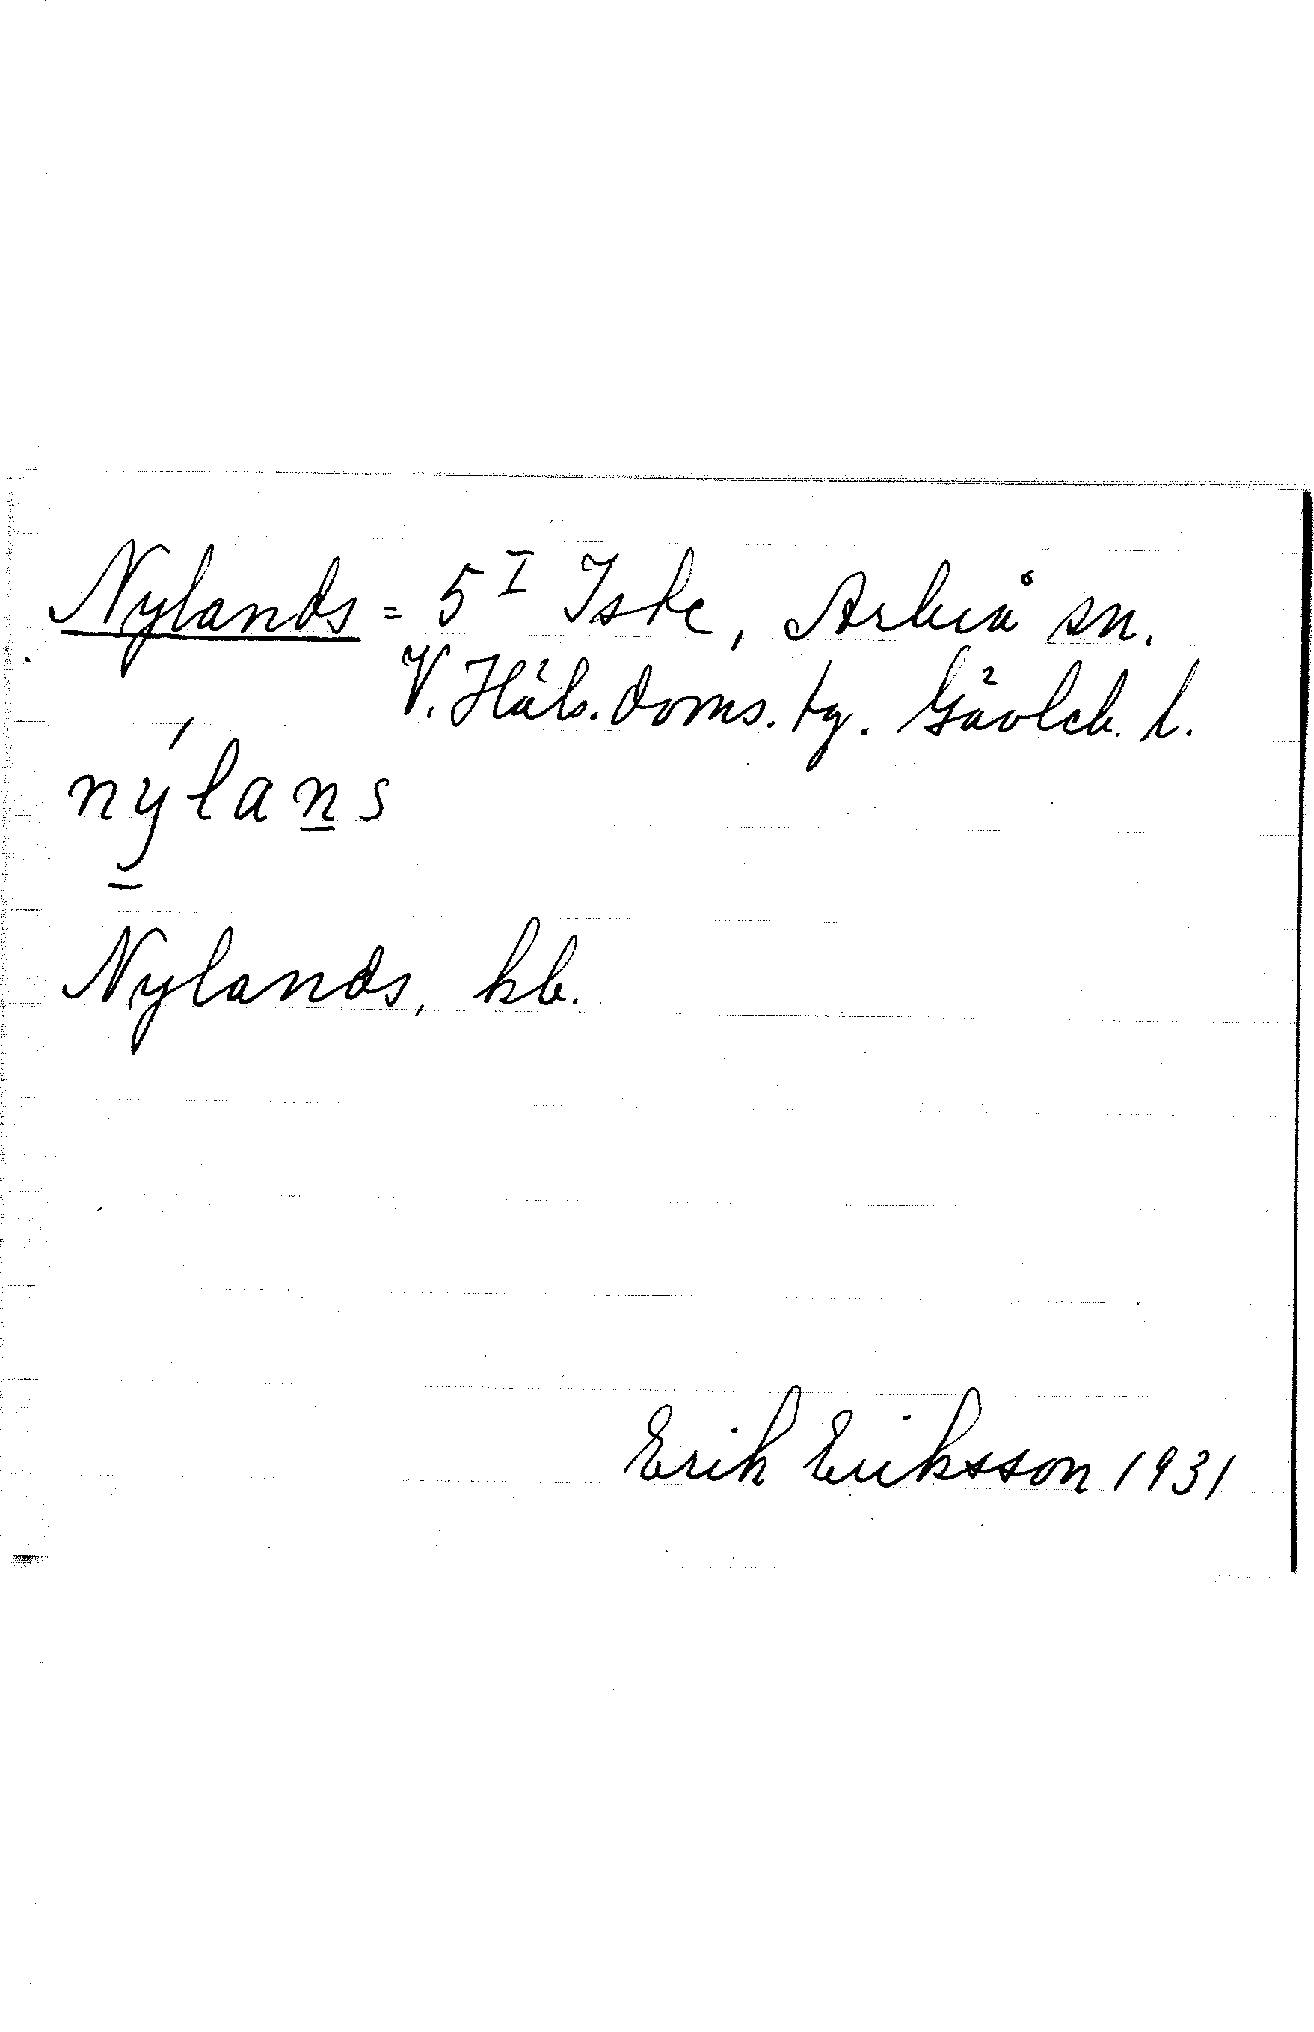 Nylands = 5ᴵ Iste, Arbrå sn.
V. Häls. doms. tg. Gävleb. l.
nýlan̲s
Nylands, kb.
Erik Eriksson 1931